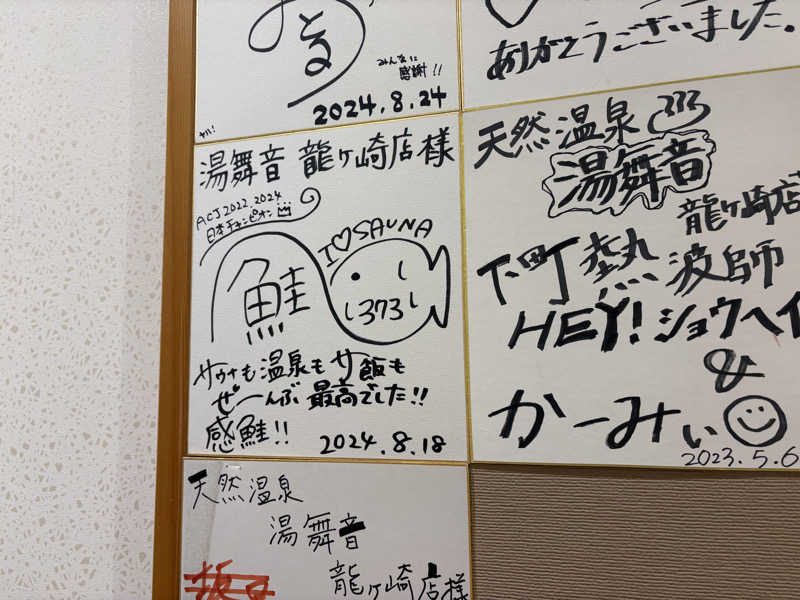 とる
みんなに
感謝!!
2024.8.24
ありがとうございました。
湯舞音 龍ヶ崎店様
ACJ2022,2024
日本チャンピオン
I♡SAUNA
鮭
373
サウナも温泉もサ飯も
ぜーんぶ最高でした!!
感鮭!!
2024.8.18
天然温泉
湯舞音
龍ヶ崎店
下町熱波師
HEY!ショウヘイ
&
かーみぃ
2023.5.6
天然温泉
湯舞音
龍ヶ崎店様